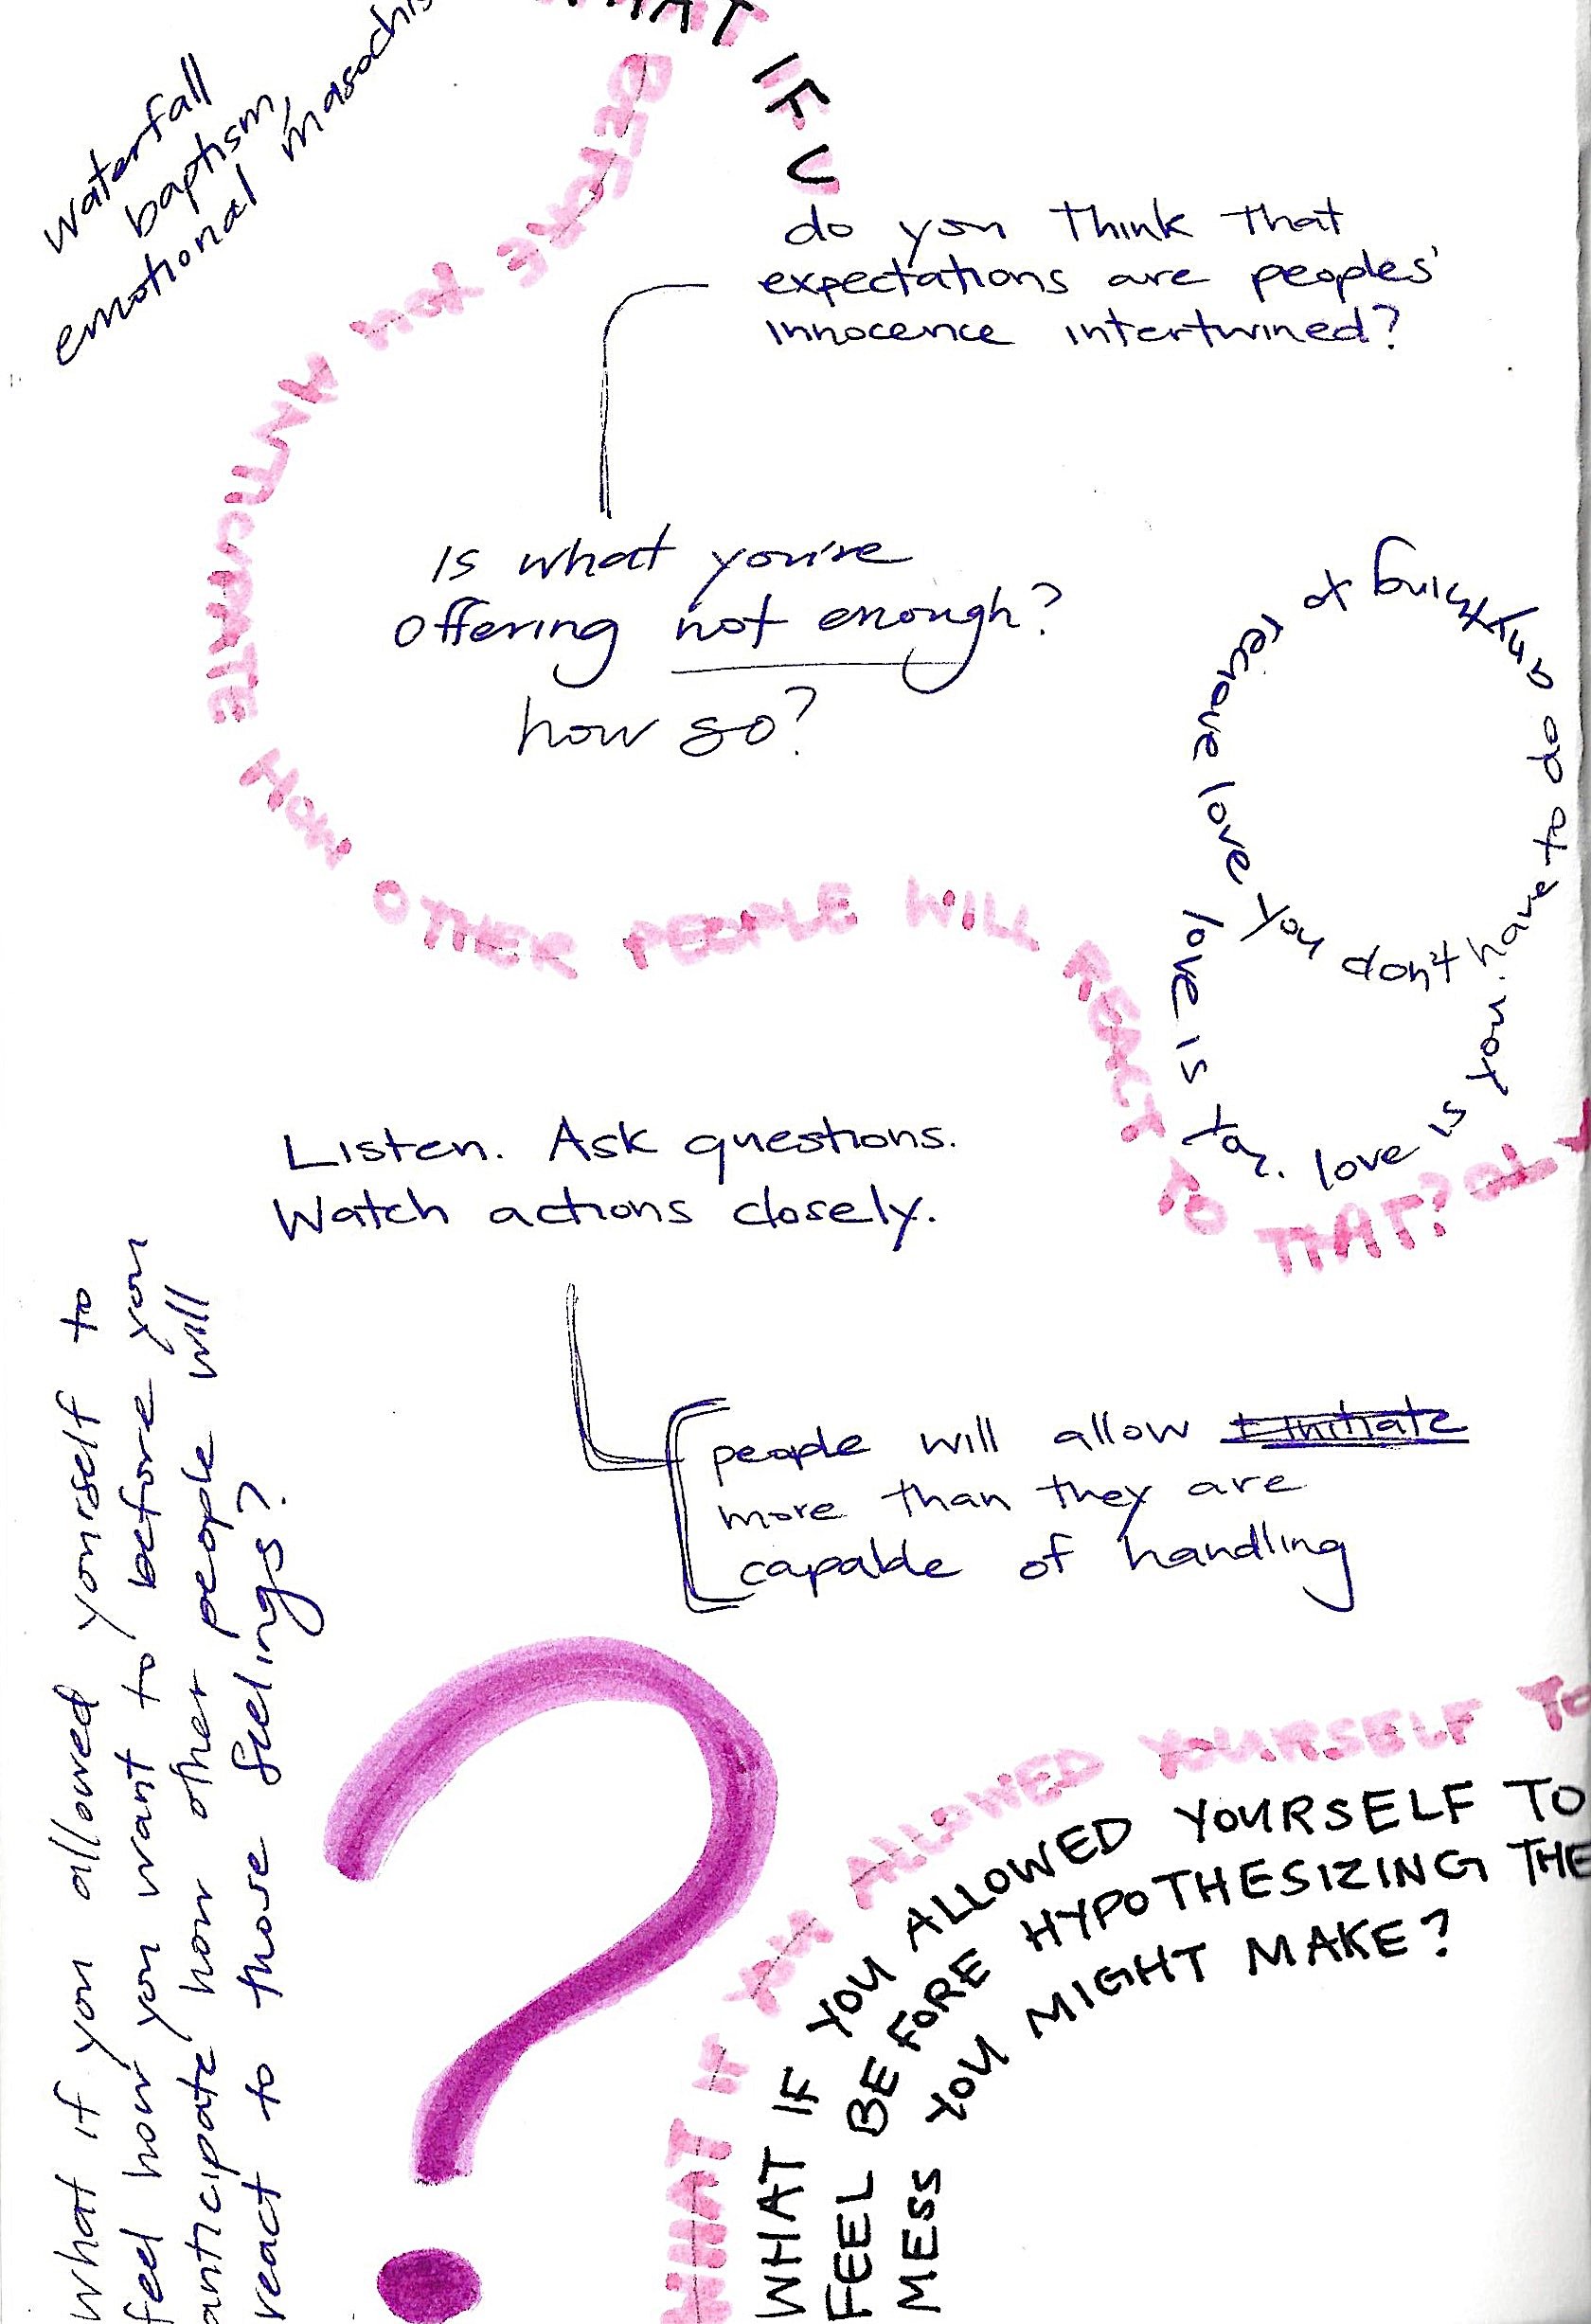 waterfall
baptism,
emotional
IF U
do you think that
expectations are peoples'
innocence intertwined?
BEFORE YOU ANTICIPATE HOW OTHER PEOPLE WILL REACT TO THAT?
Is what you're
offering not enough?
how so?
you don't have to do anything to receive love
love is you. love is you.
Listen. Ask questions.
Watch actions closely.
people will allow
more than they are
capable of handling
what if you allowed yourself to
feel how you want to before you
anticipate how other people will
react to those feelings?
WHAT IF YOU ALLOWED YOURSELF TO
WHAT IF YOU ALLOWED YOURSELF TO
FEEL BEFORE HYPOTHESIZING THE
MESS YOU MIGHT MAKE?